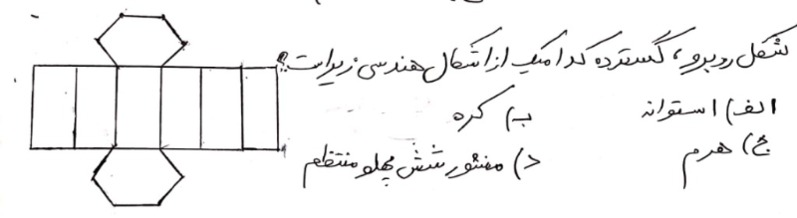 شکل روبرو، گسترده کدامیک از اشکال هندسی زیر است؟
الف) استوانه ب) کره
ج) هرم د) منشور شش پهلو منتظم